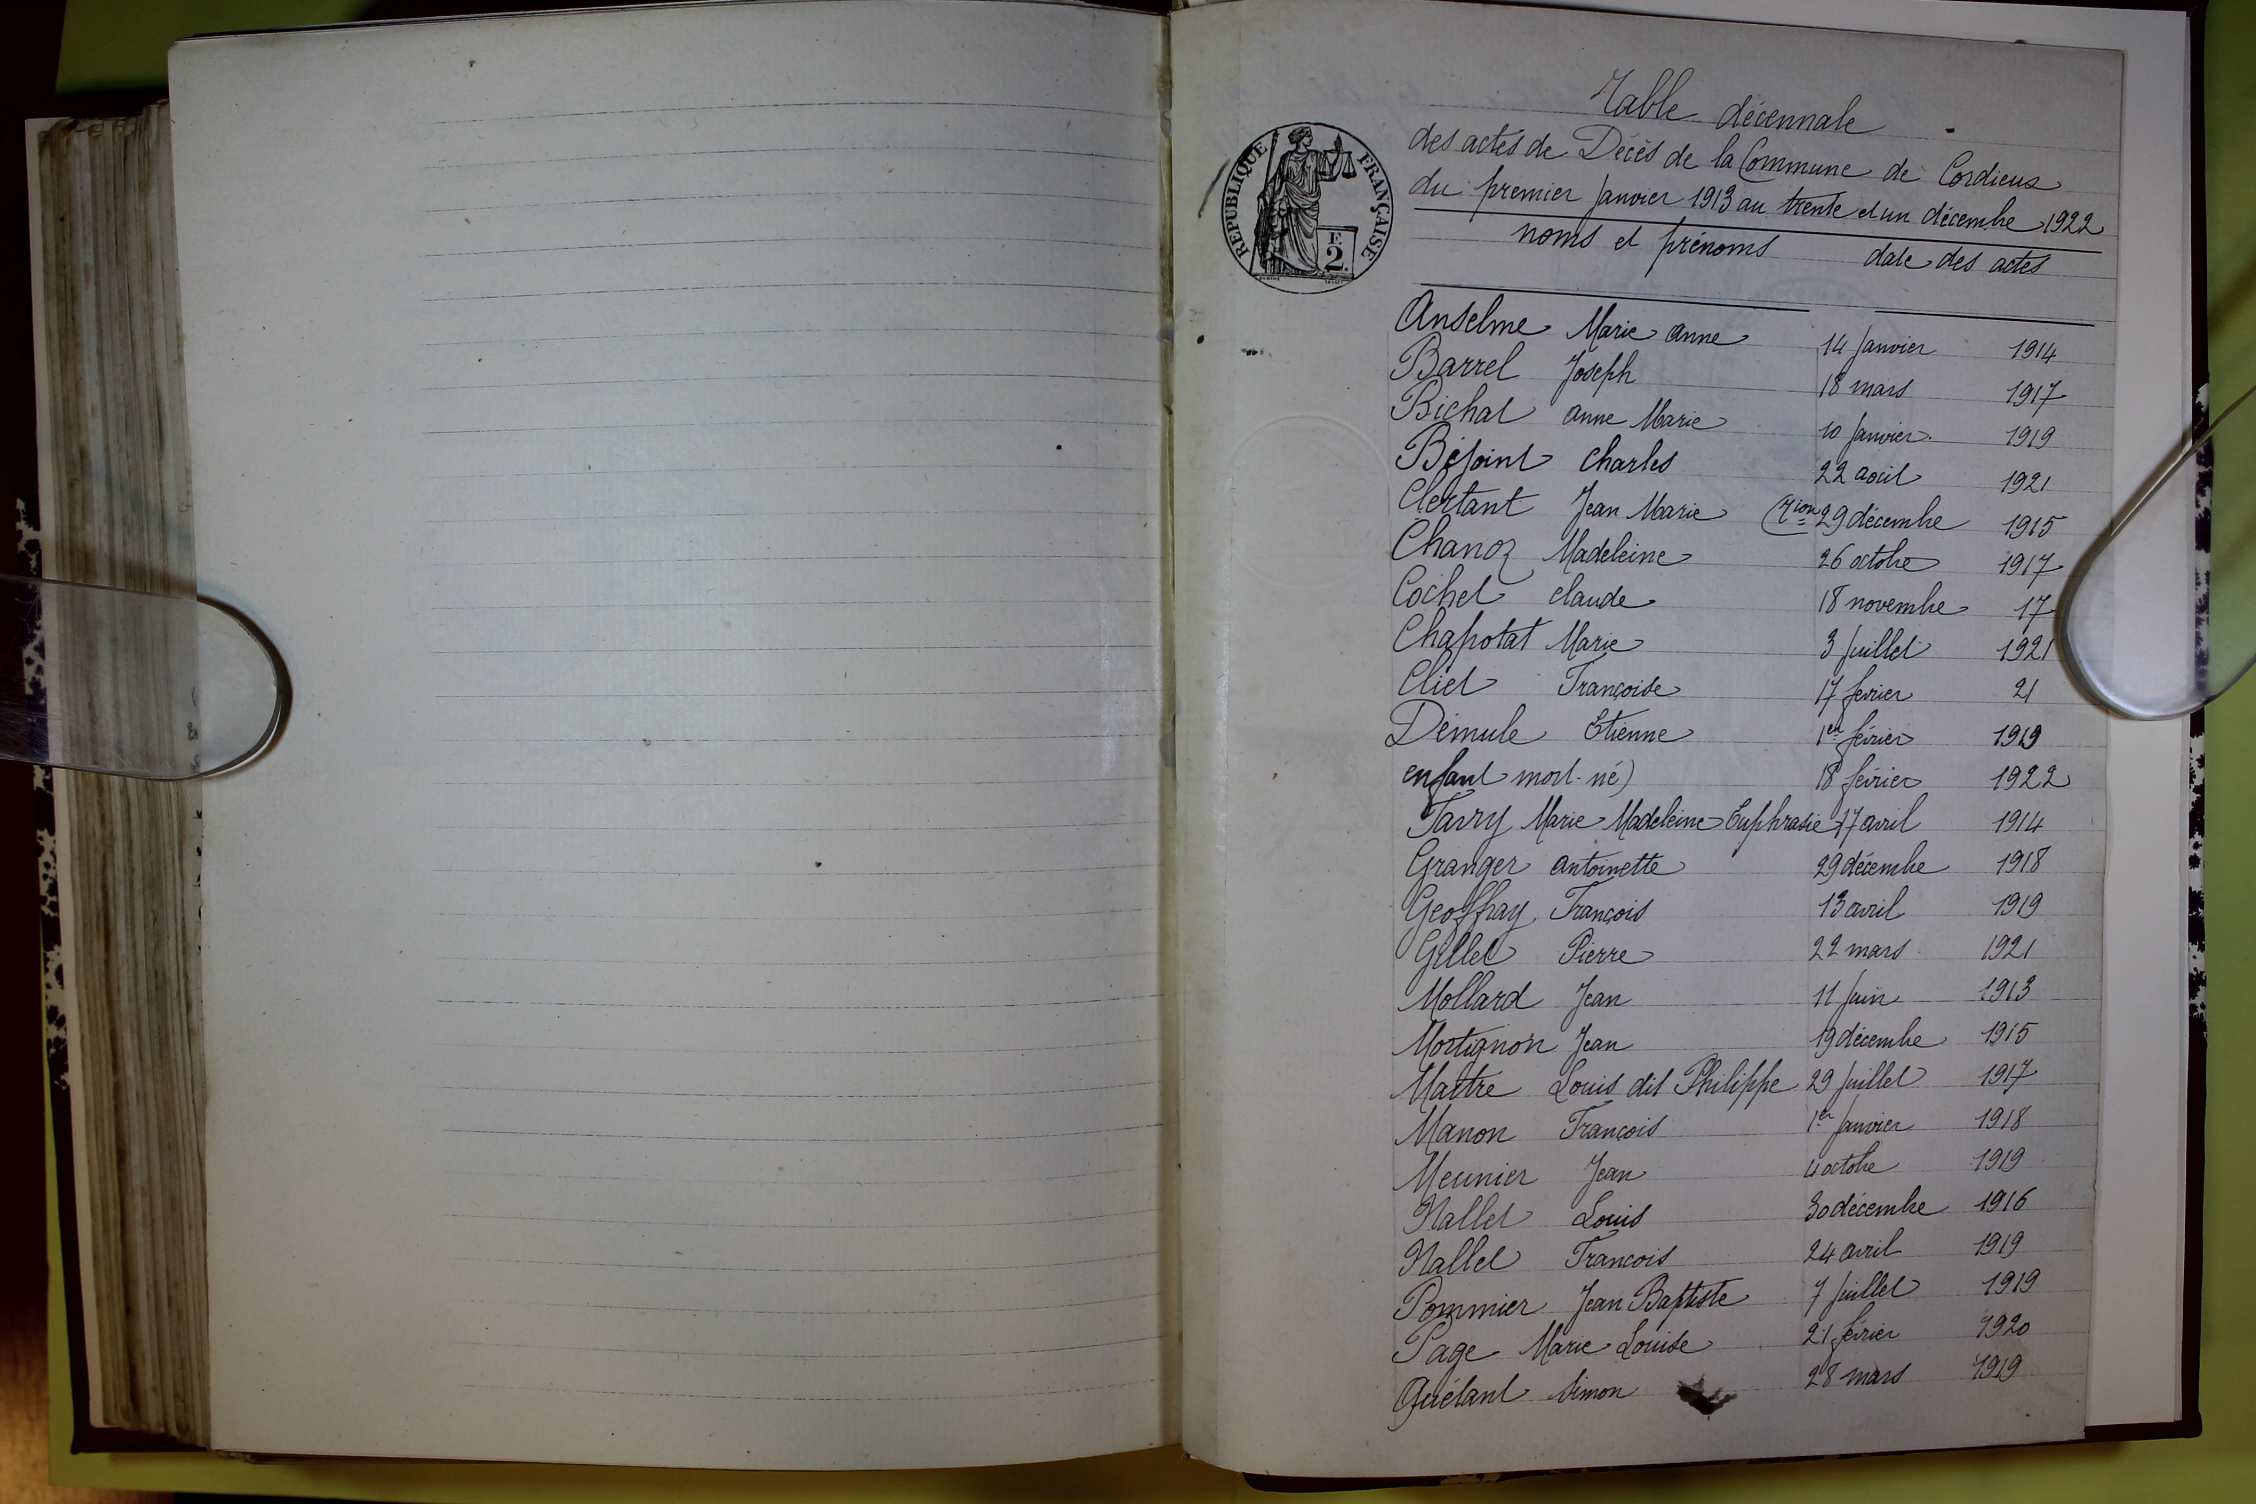 RÉPUBLIQUE FRANÇAISE
F.
2.
Table décennale
des actes de Décès de la Commune de Cordieux
du premier Janvier 1913 au trente et un décembre 1922
noms et prénoms date des actes
Anselme Marie Anne 14 Janvier 1914
Barrel Joseph 18 mars 1917
Bichat Anne Marie 10 Janvier 1919
Béjoint Charles 22 août 1921
Clertant Jean Marie 29 décembre 1915
Chanoz Madeleine 26 octobre 1917
Cochet Claude 18 novembre 17
Chapotat Marie 3 Juillet 1921
Cliet Françoise 17 février 21
Démule Etienne 1er février 1919
enfant mort-né) 18 février 1922
Favry Marie Madeleine Euphrasie 17 avril 1914
Granger Antoinette 29 décembre 1918
Geoffray François 13 avril 1919
Gillet Pierre 22 mars 1921
Mollard Jean 11 Juin 1913
Mortignon Jean 19 décembre 1915
Maître Louis dit Philippe 29 Juillet 1917
Manon François 1er Janvier 1918
Meunier Jean 4 octobre 1919
Nallet Louis 30 décembre 1916
Nallet François 24 avril 1919
Pommier Jean Baptiste 7 Juillet 1919
Page Marie Louise 21 février 1920
Quélant Simon 28 mars 1919